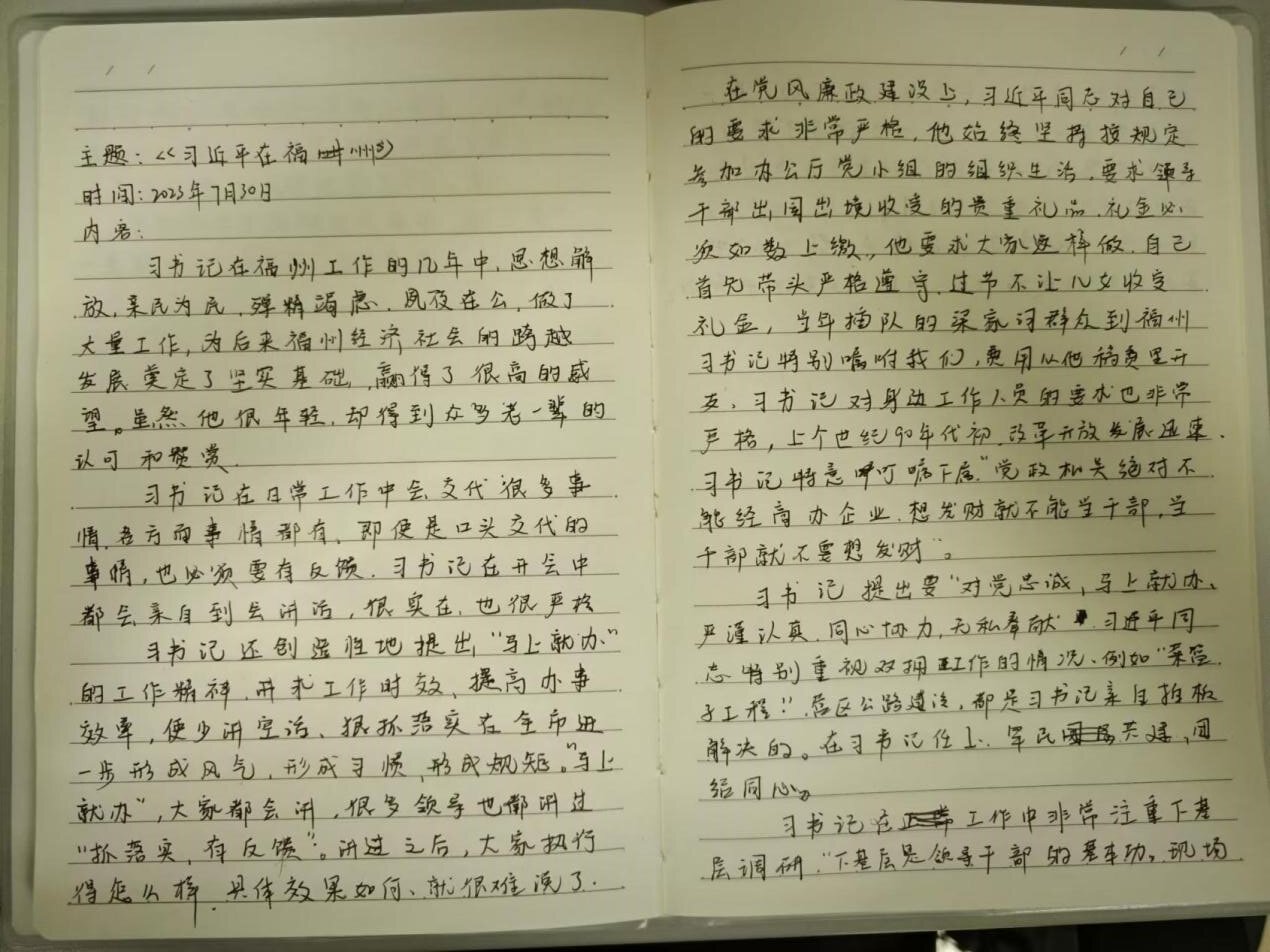 主题：《习近平在福州》
时间：2023年7月30日
内容：
习书记在福州工作的几年中，思想解
放，亲民为民，殚精竭虑，夙夜在公，做了
大量工作，为后来福州经济社会的跨越
发展奠定了坚实基础，赢得了很高的威
望。虽然他很年轻，却得到众多老一辈的
认可和赞赏.
习书记在日常工作中会交代很多事
情，各方面事情都有，即使是口头交代的
事情，也必须要有反馈．习书记在开会中
都会亲自到会讲话，很实在，也很严格
习书记还创造性地提出，“马上就办”
的工作精神，讲求工作时效，提高办事
效率，使少讲空话、狠抓落实在全市进
一步形成风气，形成习惯，形成规矩。“马上
就办”，大家都会讲，很多领导也都讲过
“抓落实，有反馈”。讲过之后，大家执行
得怎么样，具体效果如何、就很难说了．
在党风廉政建设上，习近平同志对自己
的要求非常严格，他始终坚持按规定
参加办公厅党小组的组织生活，要求领导
干部出国出境收受的贵重礼品、礼金必
须如数上缴，他要求大家这样做，自己
首先带头严格遵守，过节不让儿女收受
礼金，当年插队的梁家河群众到福州
习书记特别嘱咐我们，费用从他稿费里开
支，习书记对身边工作人员的要求也非常
严格，上个世纪90年代初，改革开放发展迅速．
习书记特意叮咛嘱下属“党政机关绝对不
能经商办企业，想发财就不能当干部，当
干部就不要想发财”。
习书记提出要“对党忠诚，马上就办、
严谨认真、同心协力，无私奉献，习近平同
志特别重视双拥工作的情况、例如“菜篮
子工程”．营区公路建设，都是习书记亲自拍板
解决的。在习书记任上、军民共建，团
结同心。
习书记在工作中非常注重下基
层调研，“下基层是领导干部的基本功。现场